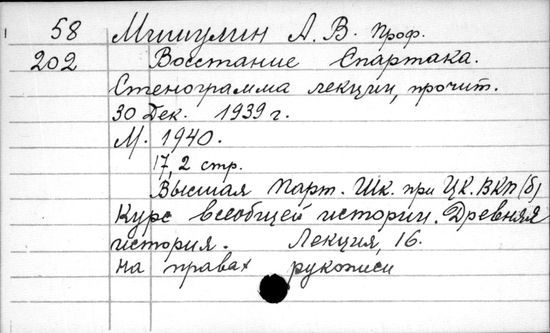 58 Мишулин А. В. Проф.
202 Восстание Спартака.
Стенограмма лекции, прочит.
30 Дек. 1939 г.
М. 1940.
17, 2 стр.
Высшая Парт. Шк. при ЦК. ВКП(б)
Курс всеобщей истории. Древняя
история. Лекция, 16.
На правах рукописи